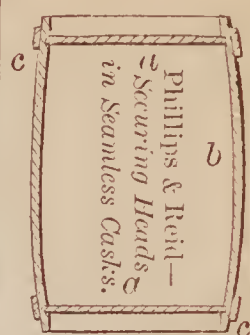 Phillips & Reid—
Securing Heads
in Seamless Casks.
c
a
b
a
c